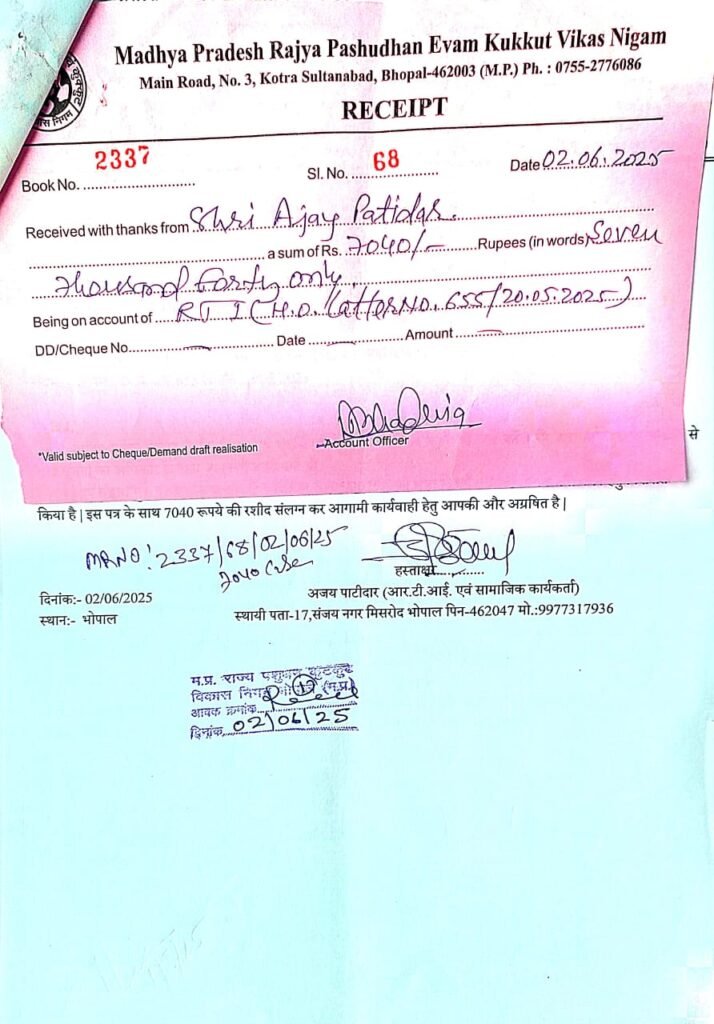 Madhya Pradesh Rajya Pashudhan Evam Kukkut Vikas Nigam
Main Road, No. 3, Kotra Sultanabad, Bhopal-462003 (M.P.) Ph. : 0755-2776086
RECEIPT
Book No. 2337 Sl. No. 68 Date 02.06.2025
Received with thanks from Shri Ajay Patidar.
a sum of Rs. 7040/- Rupees (in words) Seven
thousand forty only.
Being on account of RTI (H.O. Latter NO. 655/20.05.2025)
DD/Cheque No. Date Amount
Account Officer
*Valid subject to Cheque/Demand draft realisation
से
किया है | इस पत्र के साथ 7040 रूपये की रशीद संलग्न कर आगामी कार्यवाही हेतु आपकी और अग्रषित है |
MRNO: 2337/68/02/06/25
7040
हस्ताक्षर
दिनांक:- 02/06/2025
अजय पाटीदार (आर.टी.आई. एवं सामाजिक कार्यकर्ता)
स्थान:- भोपाल
स्थायी पता-17,संजय नगर मिसरोद भोपाल पिन-462047 मो.:9977317936
म.प्र. राज्य पशुधन कुक्कुट
विकास निगम (म.प्र.)
आवक क्रमांक
दिनांक 02/06/25